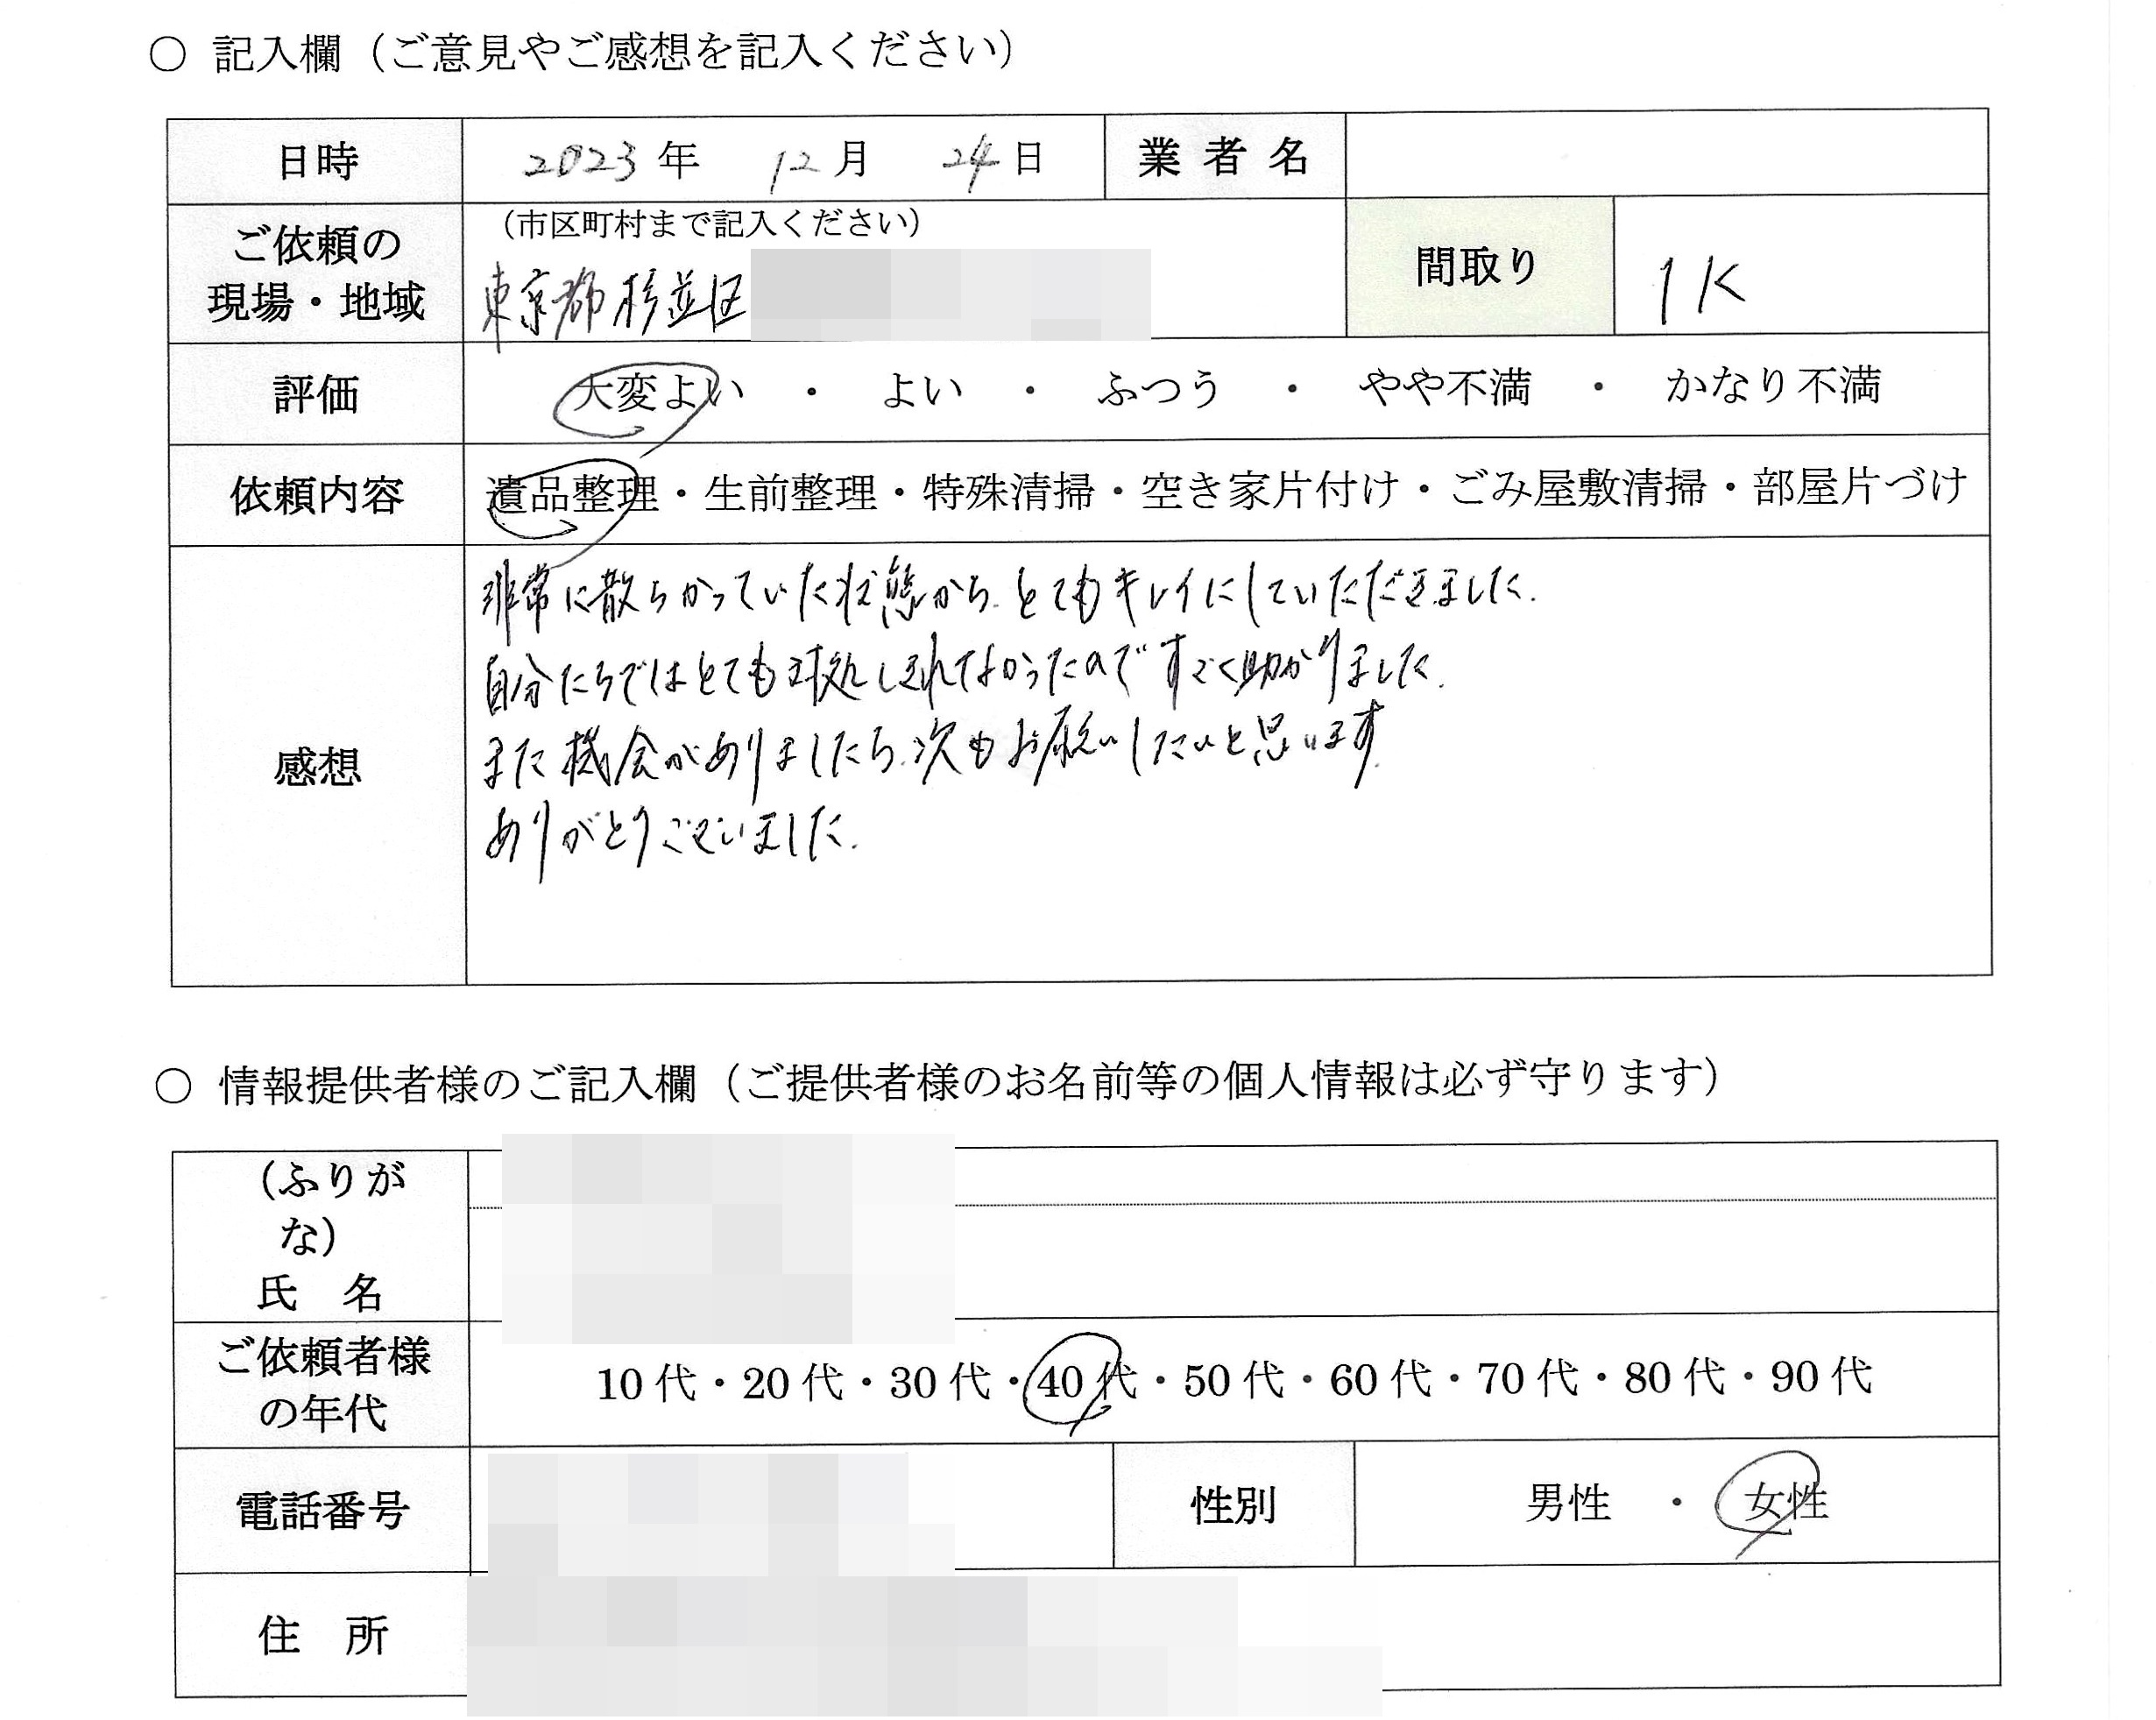 ○ 記入欄（ご意見やご感想を記入ください）
日時 2023年 12月 24日 業者名
ご依頼の現場・地域 （市区町村まで記入ください） 間取り 1K
東京都杉並区
評価 大変よい ・ よい ・ ふつう ・ やや不満 ・ かなり不満
依頼内容 遺品整理・生前整理・特殊清掃・空き家片付け・ごみ屋敷清掃・部屋片づけ
感想
非常に散らかっていた状態から、とてもキレイにしていただきました。
自分たちではとても対処しきれなかったのですごく助かりました。
また機会がありましたら、次もお願いしたいと思います。
ありがとうございました。
○ 情報提供者様のご記入欄（ご提供者様のお名前等の個人情報は必ず守ります）
（ふりが
な）
氏 名
ご依頼者様
の年代 10代・20代・30代・40代・50代・60代・70代・80代・90代
電話番号 性別 男性 ・ 女性
住 所